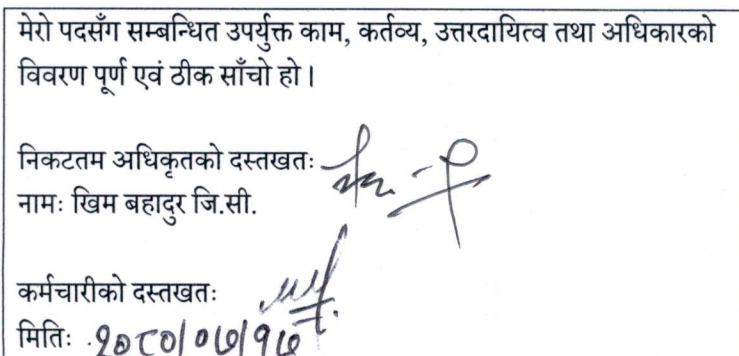 मेरो पदसँग सम्बन्धित उपर्युक्त काम, कर्तव्य, उत्तरदायित्व तथा अधिकारको
विवरण पूर्ण एवं ठीक साँचो हो।
निकटतम अधिकृतको दस्तखतः
नामः खिम बहादुर जि.सी.
कर्मचारीको दस्तखतः
मितिः २०८०/०७/१७